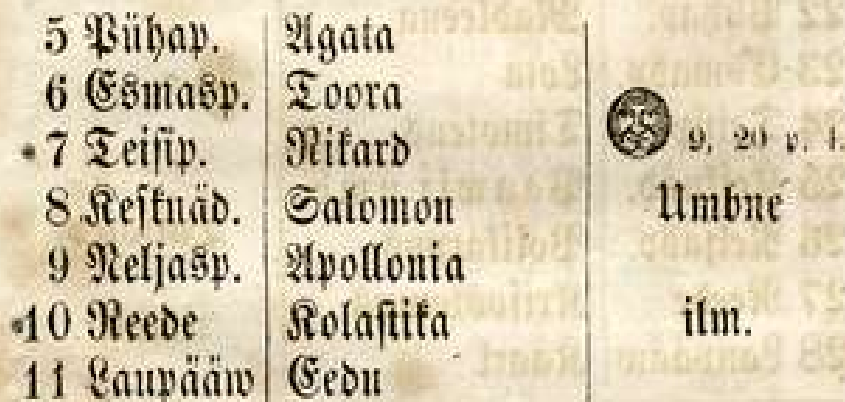 5 Pühap. Agata
6 Esmasp. Toora
7 Teisip. Rikard 9, 20 p. l.
8 Kesknäd. Salomon Umbne
9 Neljasp. Apollonia
10 Reede Kolastika ilm.
11 Laupääw Eedu